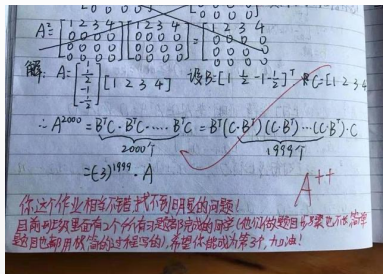 A²= [1 2 3 4 / 0 0 0 0 / 0 0 0 0 / 0 0 0 0] [1 2 3 4 / 0 0 0 0 / 0 0 0 0 / 0 0 0 0] = [1 2 3 4 / 0 0 0 0 / 0 0 0 0 / 0 0 0 0]
解: A= [1 / 1/2 / -1 / -1/2] [1 2 3 4] 设B=[1 1/2 -1 -1/2]ᵀ C=[1 2 3 4
∴ A²⁰⁰⁰ = BᵀC·BᵀC·····BᵀC = Bᵀ(C·Bᵀ)(C·Bᵀ)···(C·Bᵀ)·C
2000个 1999个
=(-3)¹⁹⁹⁹·A
A⁺⁺
你这个作业相当不错,找不到明显的问题!
目前班级里面有2个所有习题都完成的同学(他们的题目步骤也不简单
题目也都用较简的过程写的),希望你能成为第3个,加油!